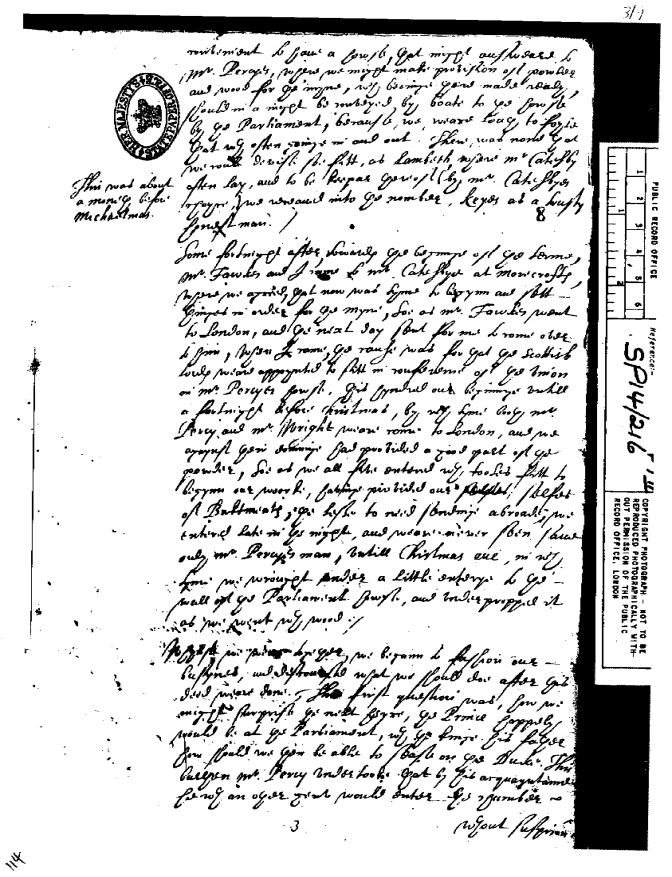 31
convenient to have a house, that might answeare to
Mr. Percyes, where we might make provision of powder
and wood for the myne, wch beinge there made ready,
should in a night be conveyed by boate to the house
by the Parliament, because we weare loath to foyle
that wth often goinge in and out. There was none that
we could devise so fitt, as Lambeth where mr Catesby
often lay, and to be keeper thereof (by mr. Catesbyes
choyse) we received into the number, Keyes as a trusty
honest man./
8
This was about
a moneth before
Michaelmas.
Some fortnight after, towards the beginninge of the terme,
Mr. Fawkes and I came to mr. Catesbye at morecrofts,
where we agreed, that now was tyme to begynn and sett
thinges in order for the myne, soe as mr. Fawkes went
to London, and the next day sent for me to come over
to him, when I came, the cause was for that the Scottish
Lords weare appoynted to sitt in conference of the Union
in mr. Percyes house. this hyndred our beginninge untill
a fortnight before Christmas, by wch tyme both mr.
Percy and mr. Wright weare come to London, and we
against their cominge had provided a good part of the
powder, soe as we all five entered wth tooles fitt to
begynn our worke, havinge provided our selfes
of Baktmeats, the lesse to need sendinge abroade, we
entered late in the night, and weare never seen save
only mr. Percyes man, untill Christmas eve, in wch
tyme we wrought under a little entry to the
wall of the Parliament house, and underpropped it
as we went wth wood./
Whilst we weare together, we begann to fashion our
busynes, and discoursed what we should doe after this
deed weare done. The first question was, how we
might surprise the next heyre, the Prince happely
would be at the Parliament, wth the kinge his father
how should we then be able to sease on the Duke. This
burthen Mr. Percy undertooke that by his acquayntance
he wth an other gent would enter the chamber
wthout suspition
3
114
HER MAJESTY'S STATE PAPER OFFICE
PUBLIC RECORD OFFICE
1 2 3 4 5 6
1 2
Reference:
SP14/216
COPYRIGHT PHOTOGRAPH - NOT TO BE
REPRODUCED PHOTOGRAPHICALLY WITH-
OUT PERMISSION OF THE PUBLIC
RECORD OFFICE, LONDON